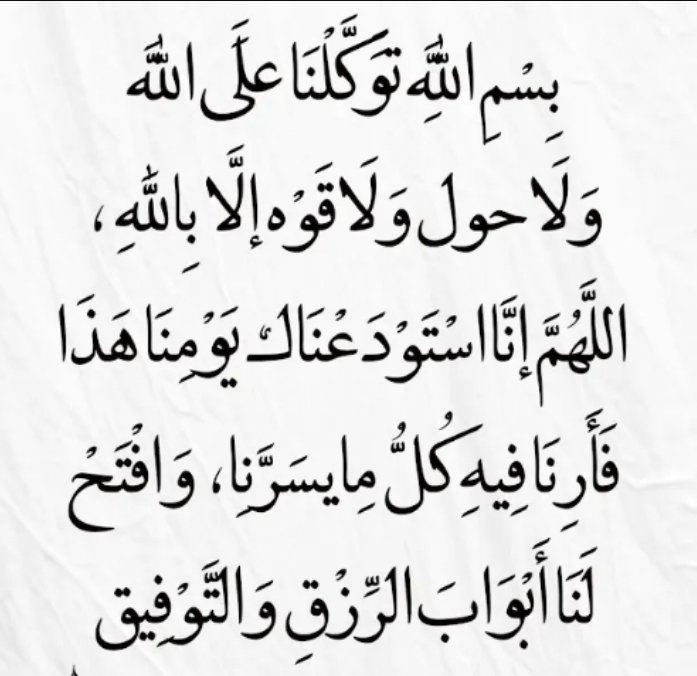 بِسْمِ اللَّهِ تَوَكَّلْنَا عَلَى اللَّه
وَلَا حول وَلَا قَوْه إلَّا بِاللَّهِ ،
اللَّهُمَّ إنَّا اسْتَوْدَعْنَاك يَوْمِنَا هَذَا
فَأَرِنَا فِيهِ كُلُّ مِا يسَرَّنِا، وَافْتَحْ
لَنَا أَبْوَابَ الرِّزْقِ وَالتَّوْفِيق